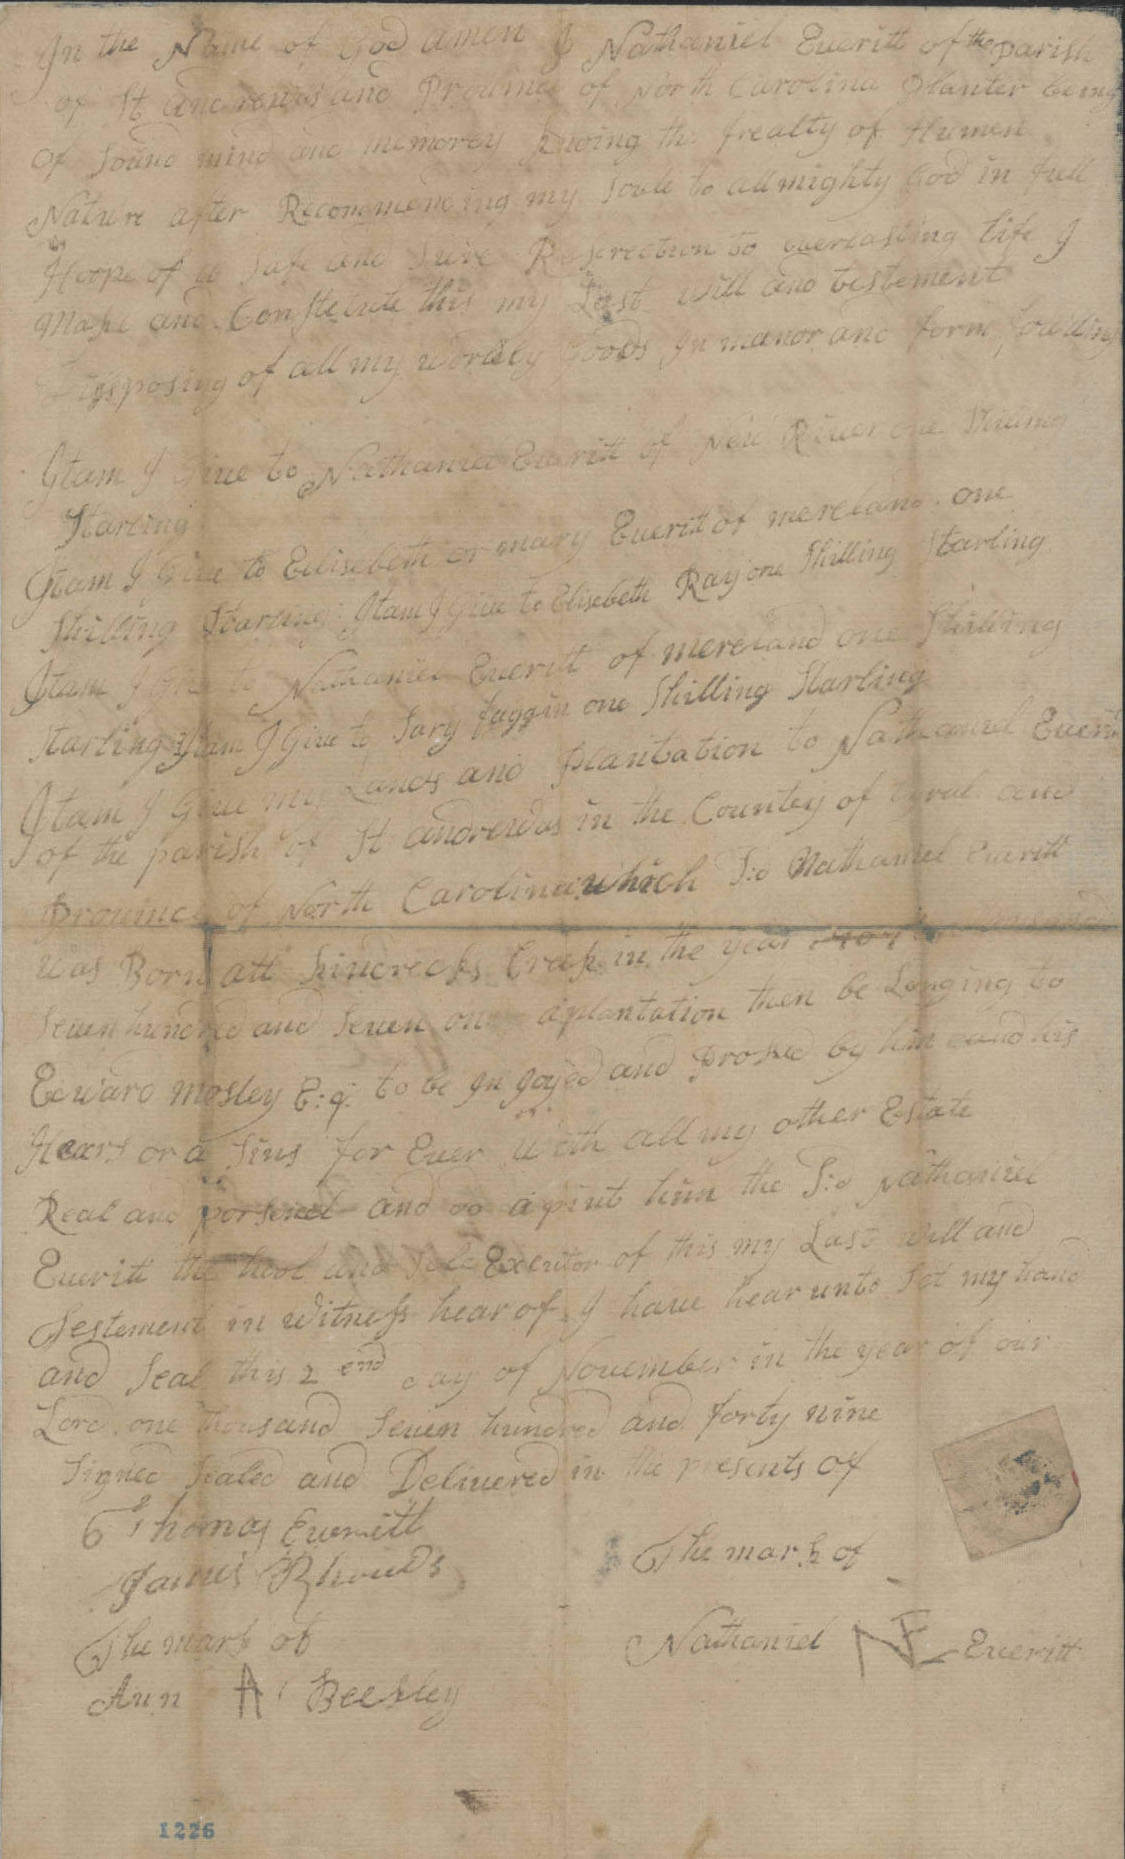 In the Name of God amen I Nathaniel Everitt of the parish
of St andrewas and Province of North Carolina Planter being
of Sound mind and memorey knoing the frealty of Humen
Nature after Recommending my Soule to allmighty God in full
Hoope of a Safe and Sure Resfrection to everlasting life I
Make and Constetute this my Last will and testement
Disposing of all my wordely Goods In manor and form
Itam I Give to Nathaniel Everitt of New River one Shilling
Starling
Itam I Give to Elisebeth or mary Everitt of mereland one
Shilling Starling Itam I Give to Elisebeth Ray one Shilling Starling
Itam I Give to Nathaniel Everitt of mereland one Shilling
Starling Itam I Give to Sary one Shilling Starling
Itam I Give my Lands and Plantation to Nathaniel Everitt
of the parish of St andrewas in the Countey of tyrul and
Province of North Carolina which Sd Nathaniel Everitt
was Born att Creek in the year
Seven hundred and Seven one aplantation then be Longing to
Edward Mosley E:q: to be In Joyed and by him and his
Hears or a Sins for Ever With all my other Estate
Real and and do apint him the Sd Nathaniel
Everitt the hool and Sole Executor of this my Last will and
Testement in witness hear of I have hear unto Set my hand
and Seal this 2 end day of November in the year of our
Lord one thousand Seven hundred and forty nine
Signed Sealed and Delivered in the presents of
Thomas Everitt
James Rhouds
The mark of
The mark of
Nathaniel NE Everitt
Ann A Beesley
1226